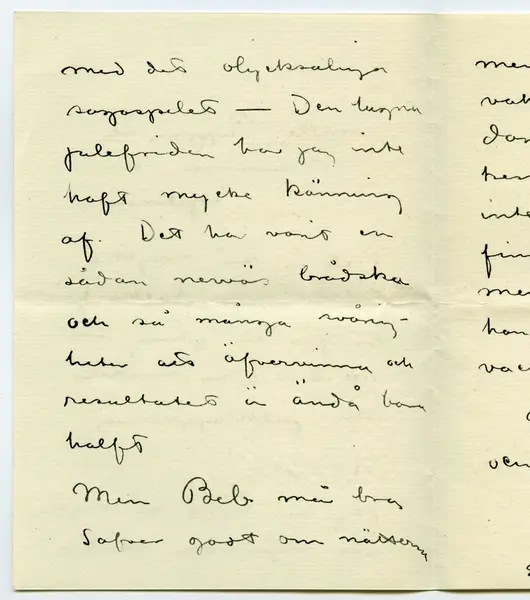 med det olycksaliga
sagospelet — Den lugna
julefriden har jag inte
haft mycke känning
af. Det har varit en
sådan nervös brådska
och så många svårig-
heter att öfvervinna och
resultatet är ändå bara
halft
Men Beb mår bra
Sofver godt om nätterna
men
vak
dom
inte
fin
me
hon
vac
och